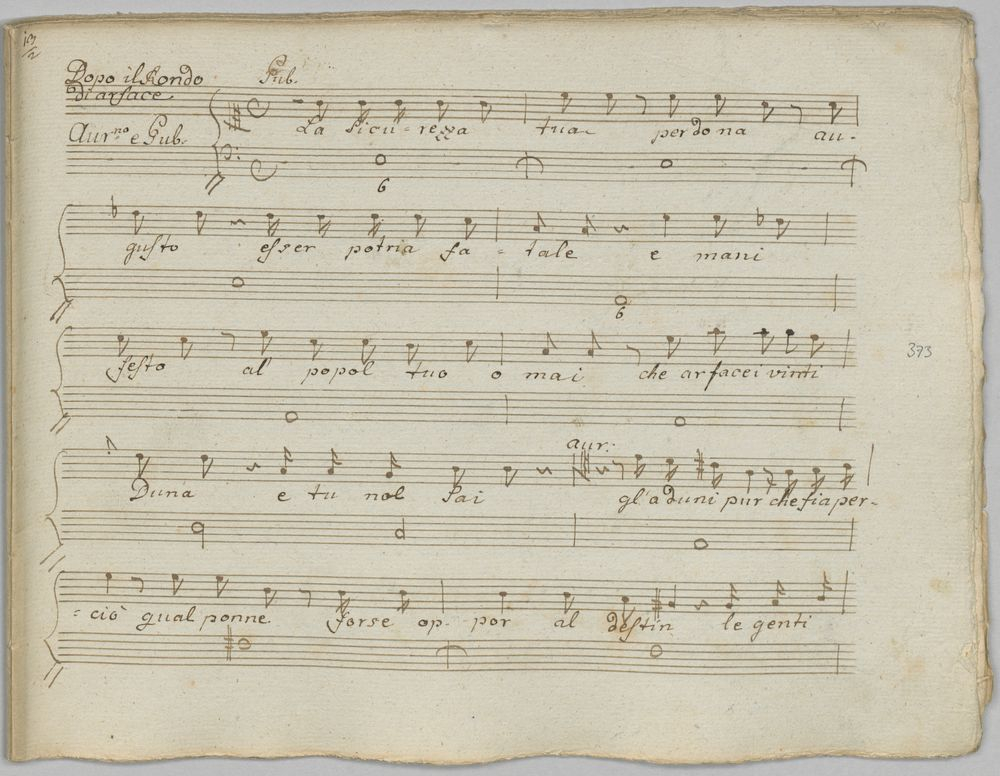 Dopo il Rondo
di arsace
Pub.
Aur.no e Pub.
La sicu-rezza tua perdona au-
6
gusto esser potria fa-tale e mani
6
festo al popol tuo o mai che arsace i vinti
aur:
Duna e tu nol sai gl'aduni pur che fia per-
-ciò qual ponne forse op-por al destin le genti
373